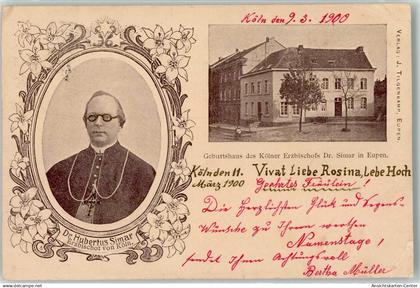 Köln den 9. 3. 1900
VERLAG J. TILGENKAMP, EUPEN.
Geburtshaus des Kölner Erzbischofs Dr. Simar in Eupen.
Köln den 11. März 1900
Vivat Liebe Rosina, Lebe Hoch
Geehrtes Fräulein!
Die Herzlichsten Glück und Segens-
Wünsche zu Ihrem werthen
Namenstage,
sendet Ihnen Achtungsvoll
Bertha Müller
Dr. Hubertus Simar
Erzbischof von Köln.
www.ansichtskarten-center.de
Ansichtskarten-Center